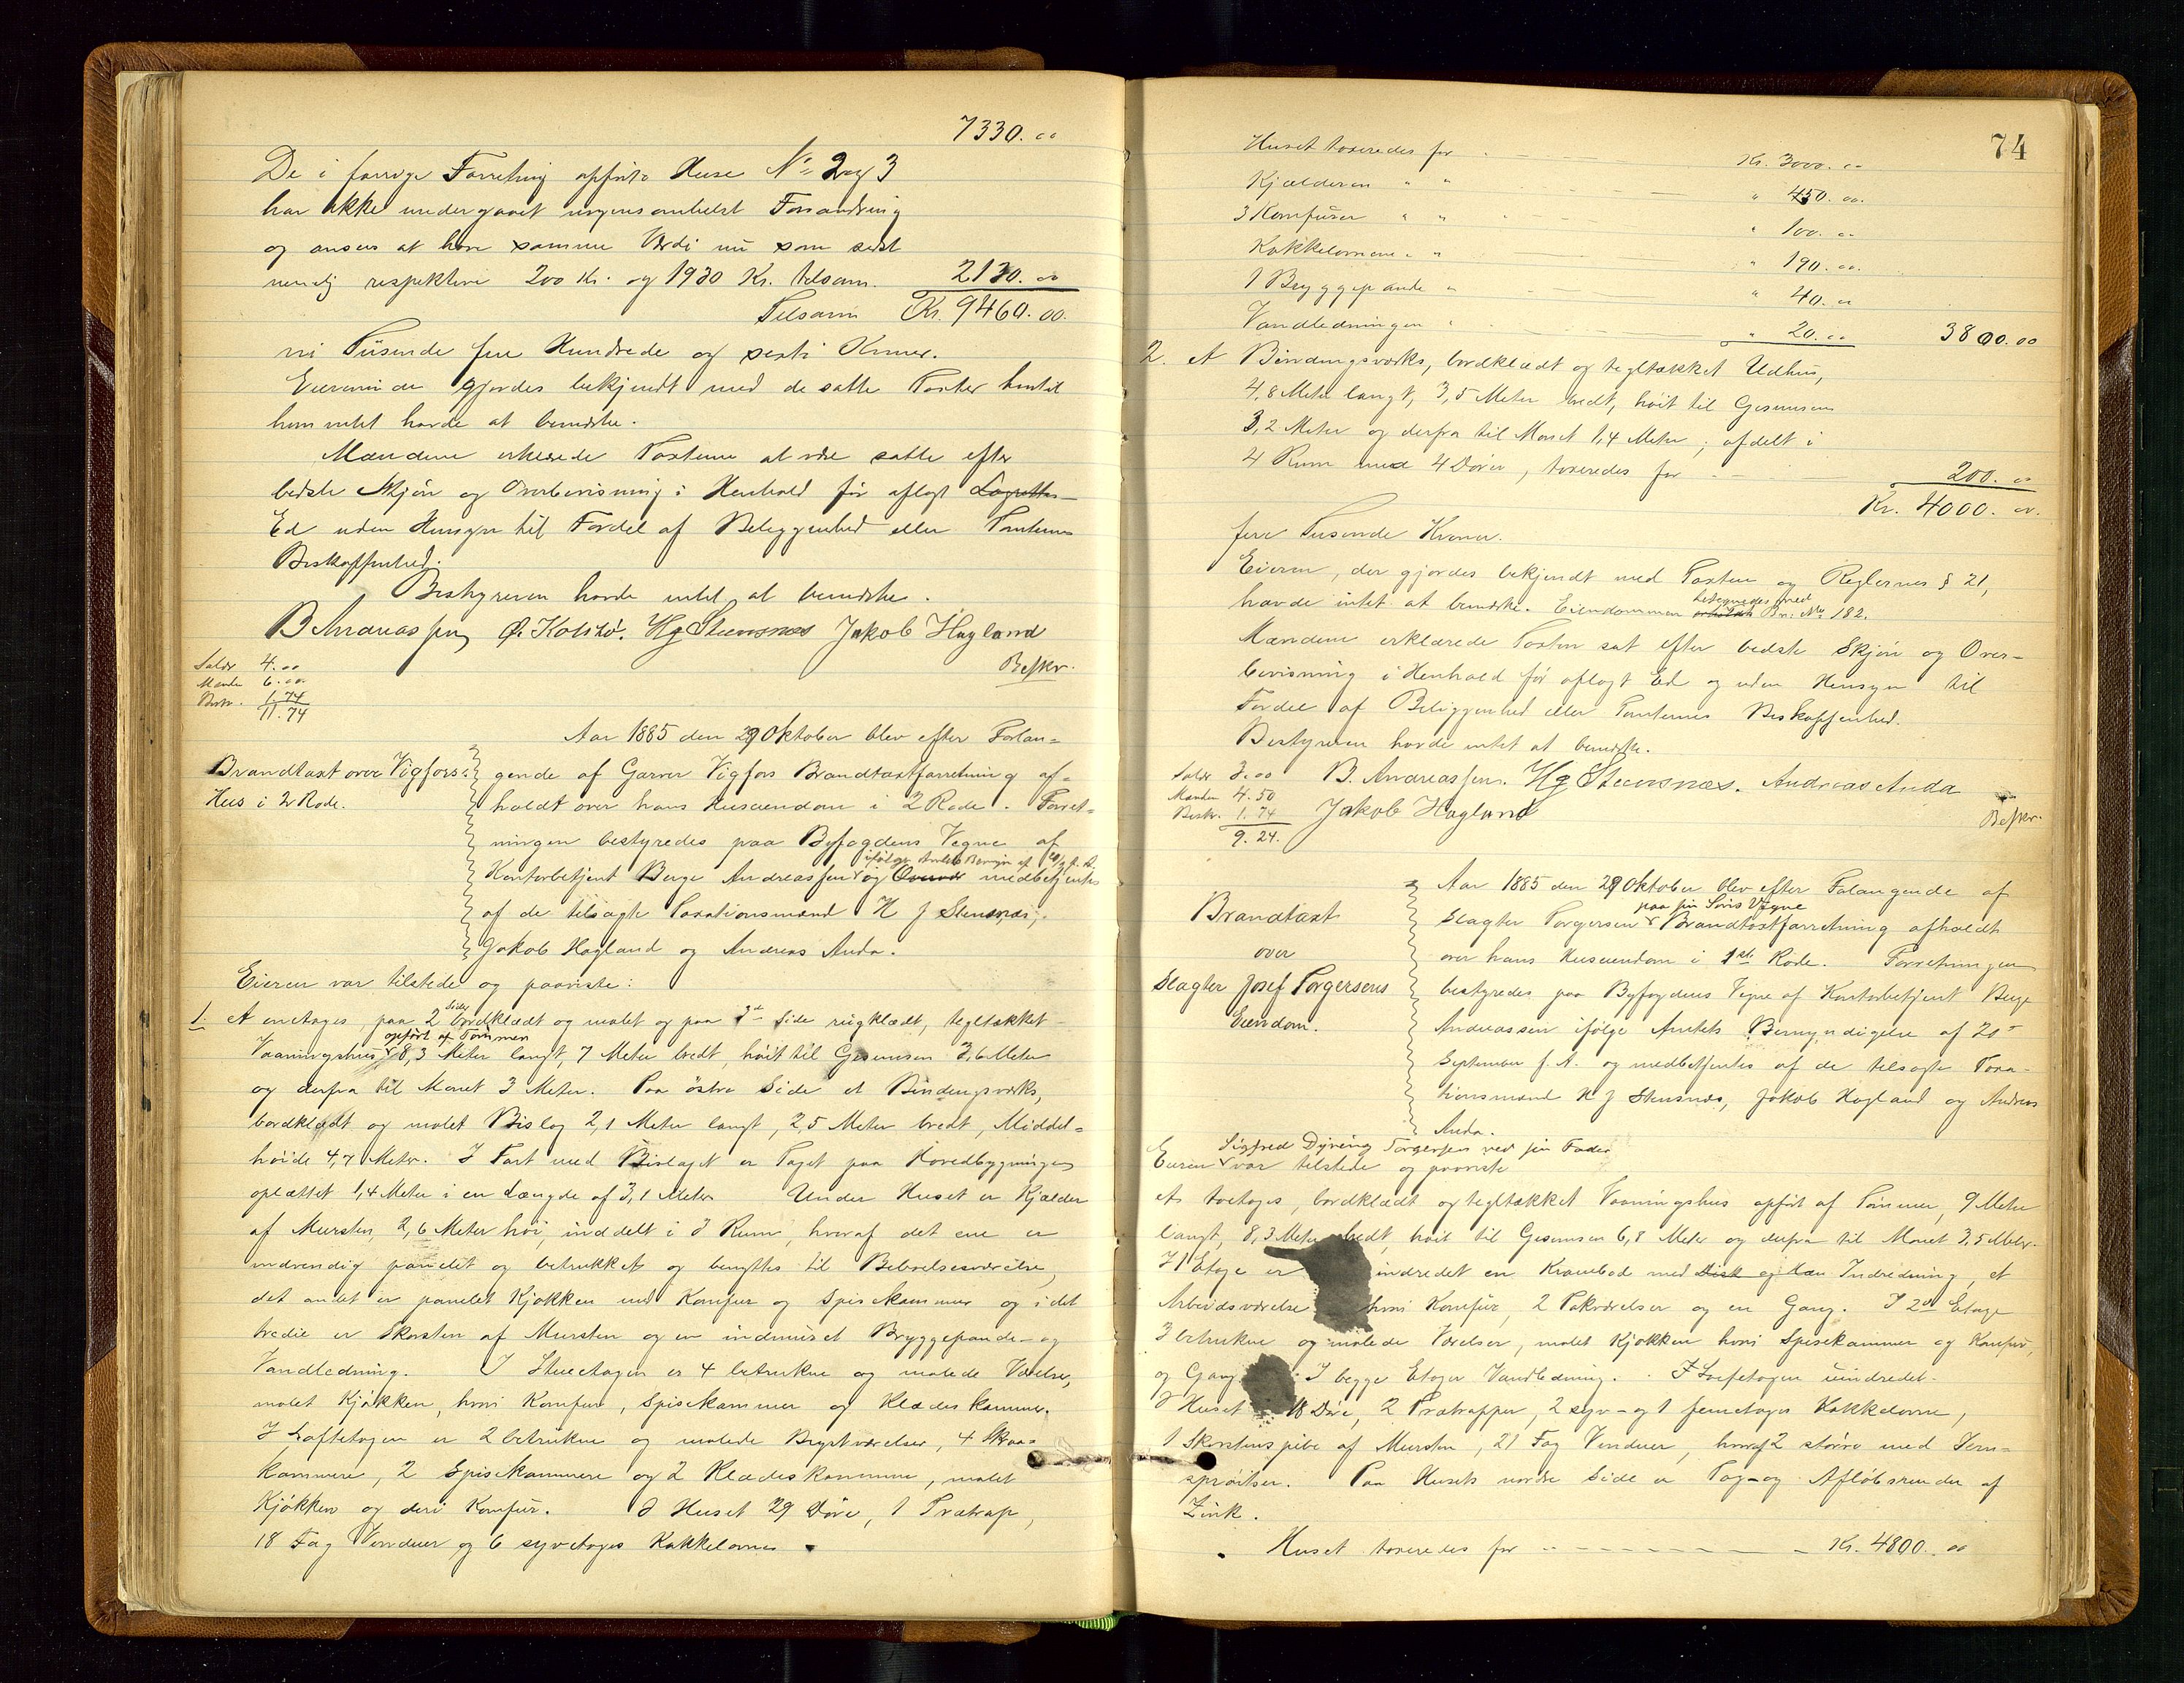 7330.00
De i forrige Forretning opførte Huse No 2 og 3
har ikke undergaaet nogensomhelst Forandring
og ansees at have samme Værdi nu som sidst
nemlig respektive 200 Kr. og 1930 Kr. tilsam. 2130.00
Tilsam Kr. 9460.00.
ni Tusende fire Hundrede og sexti Kroner.
Eierinden gjordes bekjendt med de satte Taxter hvortil
hun intet havde at bemerke.
Mændene erklærede Taxterne at være satte efter
bedste Skjøn og Overbevisning i Henhold før aflagt Lagrettes-
Ed uden Hensyn til Fordel af Beliggenhed eller Tomtens
Beskaffenhed.
Bestyreren havde intet at bemerke.
B Andreassen Ø. Kolstø. Hg Stensnæs Jakob Hagland
Beskr.
Taler 4.00
Mænde 6.00
Beskr. 1.74
11.74
Aar 1885 den 29 Oktober blev efter Forlan=
Brandtaxt over Vigfors: gende af Garver Vigfors Brandtaxtforretning af=
Hus i 2 Rode. holdt over hans Huseiendom i 2 Rode. Forret=
ningen bestyredes paa Byfogdens Vegne af
ifølge Amtets Bemyn af 20/9 f. A.
Kontorbetjent Berge Andreassen og medbetjentes
af de tilsagte Taxationsmænd H J Stensnæs,
Jakob Hagland og Andreas Anda.
Eieren var tilstede og paaviste:
1. et enetages, paa 2 Sider bordklædt og malet og paa 3de Side rugklædt, tegltækket
opført af Tømmer
Vaaningshus 8,3 Meter langt, 7 Meter bredt, høit til Gesimsen 3,6 Meter
og derfra til Mønet 3 Meter. Paa østre Side et Bindingsværks,
bordklædt og malet Bislag 2,1 Meter langt, 2,5 Meter bredt, Middel=
høide 4,7 Meter. I Fart med Bislaget er Taget paa Hovedbygningen
oplættet 1,4 Meter i en Længde af 3,1 Meter Under Huset er Kjælder
af Mursten, 2,6 Meter høi, inddelt i 3 Rum, hvoraf det ene er
indvendig panelet og betrukket og benyttes til Beboelsesværelse,
det andet er panelet Kjøkken med Komfur og Spisekammer og i det
tredie er Skorsten af Mursten og en indmuret Bryggepande- og
Vandledning. I Stueetagen er 4 betrukne og malede Værelser,
malet Kjøkken, hvori Komfur, Spisekammer og Klædeskammer.
I Loftetagen er 2 betrukne og malede Brystværelser, 4 Skraa=
kammere, 2 Spisekammere og 2 Klædeskammere, malet
Kjøkken og deri Komfur. I Huset 29 Døre, 1 Trætrap,
18 Fag Vinduer og 6 syvetages Kakkelovne.
74
Huset taxeredes for Kr. 3000.00
Kjælderen " " " 450.00.
3 Komfurer " " " 100.00
Kakkelovnene " " " 190.00.
1 Bryggepande " " 40.00
Vandledningen " " 20.00 3800.00
2. et Bindingsværks, bordklædt og tegltækket Udhus,
4,8 Meter langt, 3,5 Meter bredt, høit til Gesimsen
3,2 Meter og derfra til Mønet 1,4 Meter; afdelt i
4 Rum med 4 Døre, taxeredes for 200.00
Kr. 4000.00.
fire Tusende Kroner.
Eieren, der gjordes bekjendt med Taxten og Reglernes § 21,
betegnedes med
havde intet at bemerke. Eiendommen Br. No 182.
Mændene erklærede Taxten sat efter bedste Skjøn og Over=
bevisning i Henhold før aflagt Ed og uden Hensyn til
Fordel af Beliggenhed eller Tomternes Beskaffenhed.
Bestyreren havde intet at bemerke.
Taler 3.00 B. Andreassen. Hg Stensnæs. Andreas Anda
Mænde 4.50
Beskr. 1.74 Jakob Hagland Beskr.
9.24.
Aar 1885 den 29 Oktober blev efter Forlangende af
paa sin Søns Vegne
Brandtaxt Slagter Torgersen Brandtaxtforretning afholdt
over over hans Huseiendom i 1ste Rode. Forretningen
Slagter Josef Torgersens bestyredes paa Byfogdens Vegne af Kontorbetjent Berge
Eiendom. Andreassen ifølge Amtets Bemyndigelse af 20de
September f. A. og medbetjentes af de tilsagte Taxa-
tionsmænd H J Stensnæs, Jakob Hagland og Andreas
Anda.
Sigfred Dyreng Torgersen ved sin Fader
Eieren var tilstede og paaviste
et toetages, bordklædt og tegltækket Vaaningshus opført af Tømmer, 9 Meter
langt, 8,3 Meter bredt, høit til Gesimsen 6,8 Meter og derfra til Mønet 3,5 Meter.
I 1 Etage er indredet en Krambod med Disk og Indredning, et
Arbeidsværelse hvori Komfur, 2 Pakværelser og en Gang. I 2den Etage
3 betrukne og malede Værelser, malet Kjøkken hvori Spisekammer og Komfur,
og Gang I begge Etager Vandledning. I Loftetagen uindredet.
I Huset 18 Døre, 2 Trætrapper, 2 syv- og 1 femetages Kakkelovne,
1 Skorstenspibe af Mursten, 21 Fag Vinduer, hvoraf 2 større med Jern=
sprøitser. Paa Husets nordre Side er Tag- og Afløbsrender af
Zink.
Huset taxeredes for Kr. 4800.00